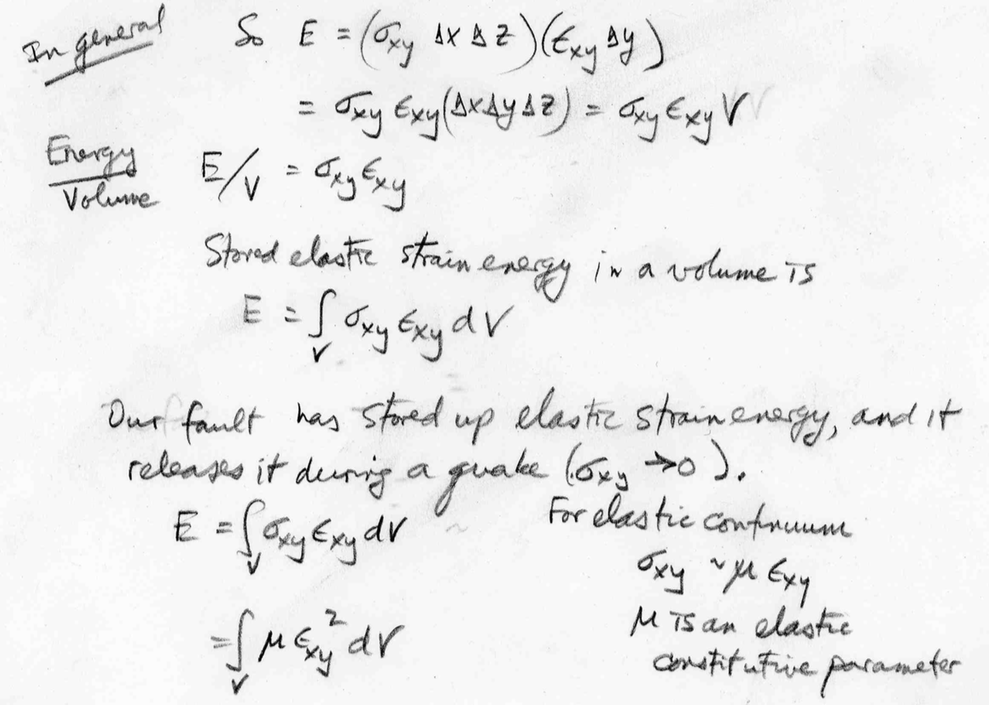 In general So E = (σxy Δx Δz)(ϵxy Δy)
= σxy ϵxy(ΔxΔyΔz) = σxy ϵxy V
Energy
Volume
E/V = σxy ϵxy
Stored elastic strain energy in a volume is
E = ∫V σxy ϵxy dV
Our fault has stored up elastic strain energy, and it
releases it during a quake (σxy → 0).
E = ∫V σxy ϵxy dV
For elastic continuum
σxy ~ μ ϵxy
= ∫V μ ϵxy² dV
μ is an elastic
constitutive parameter